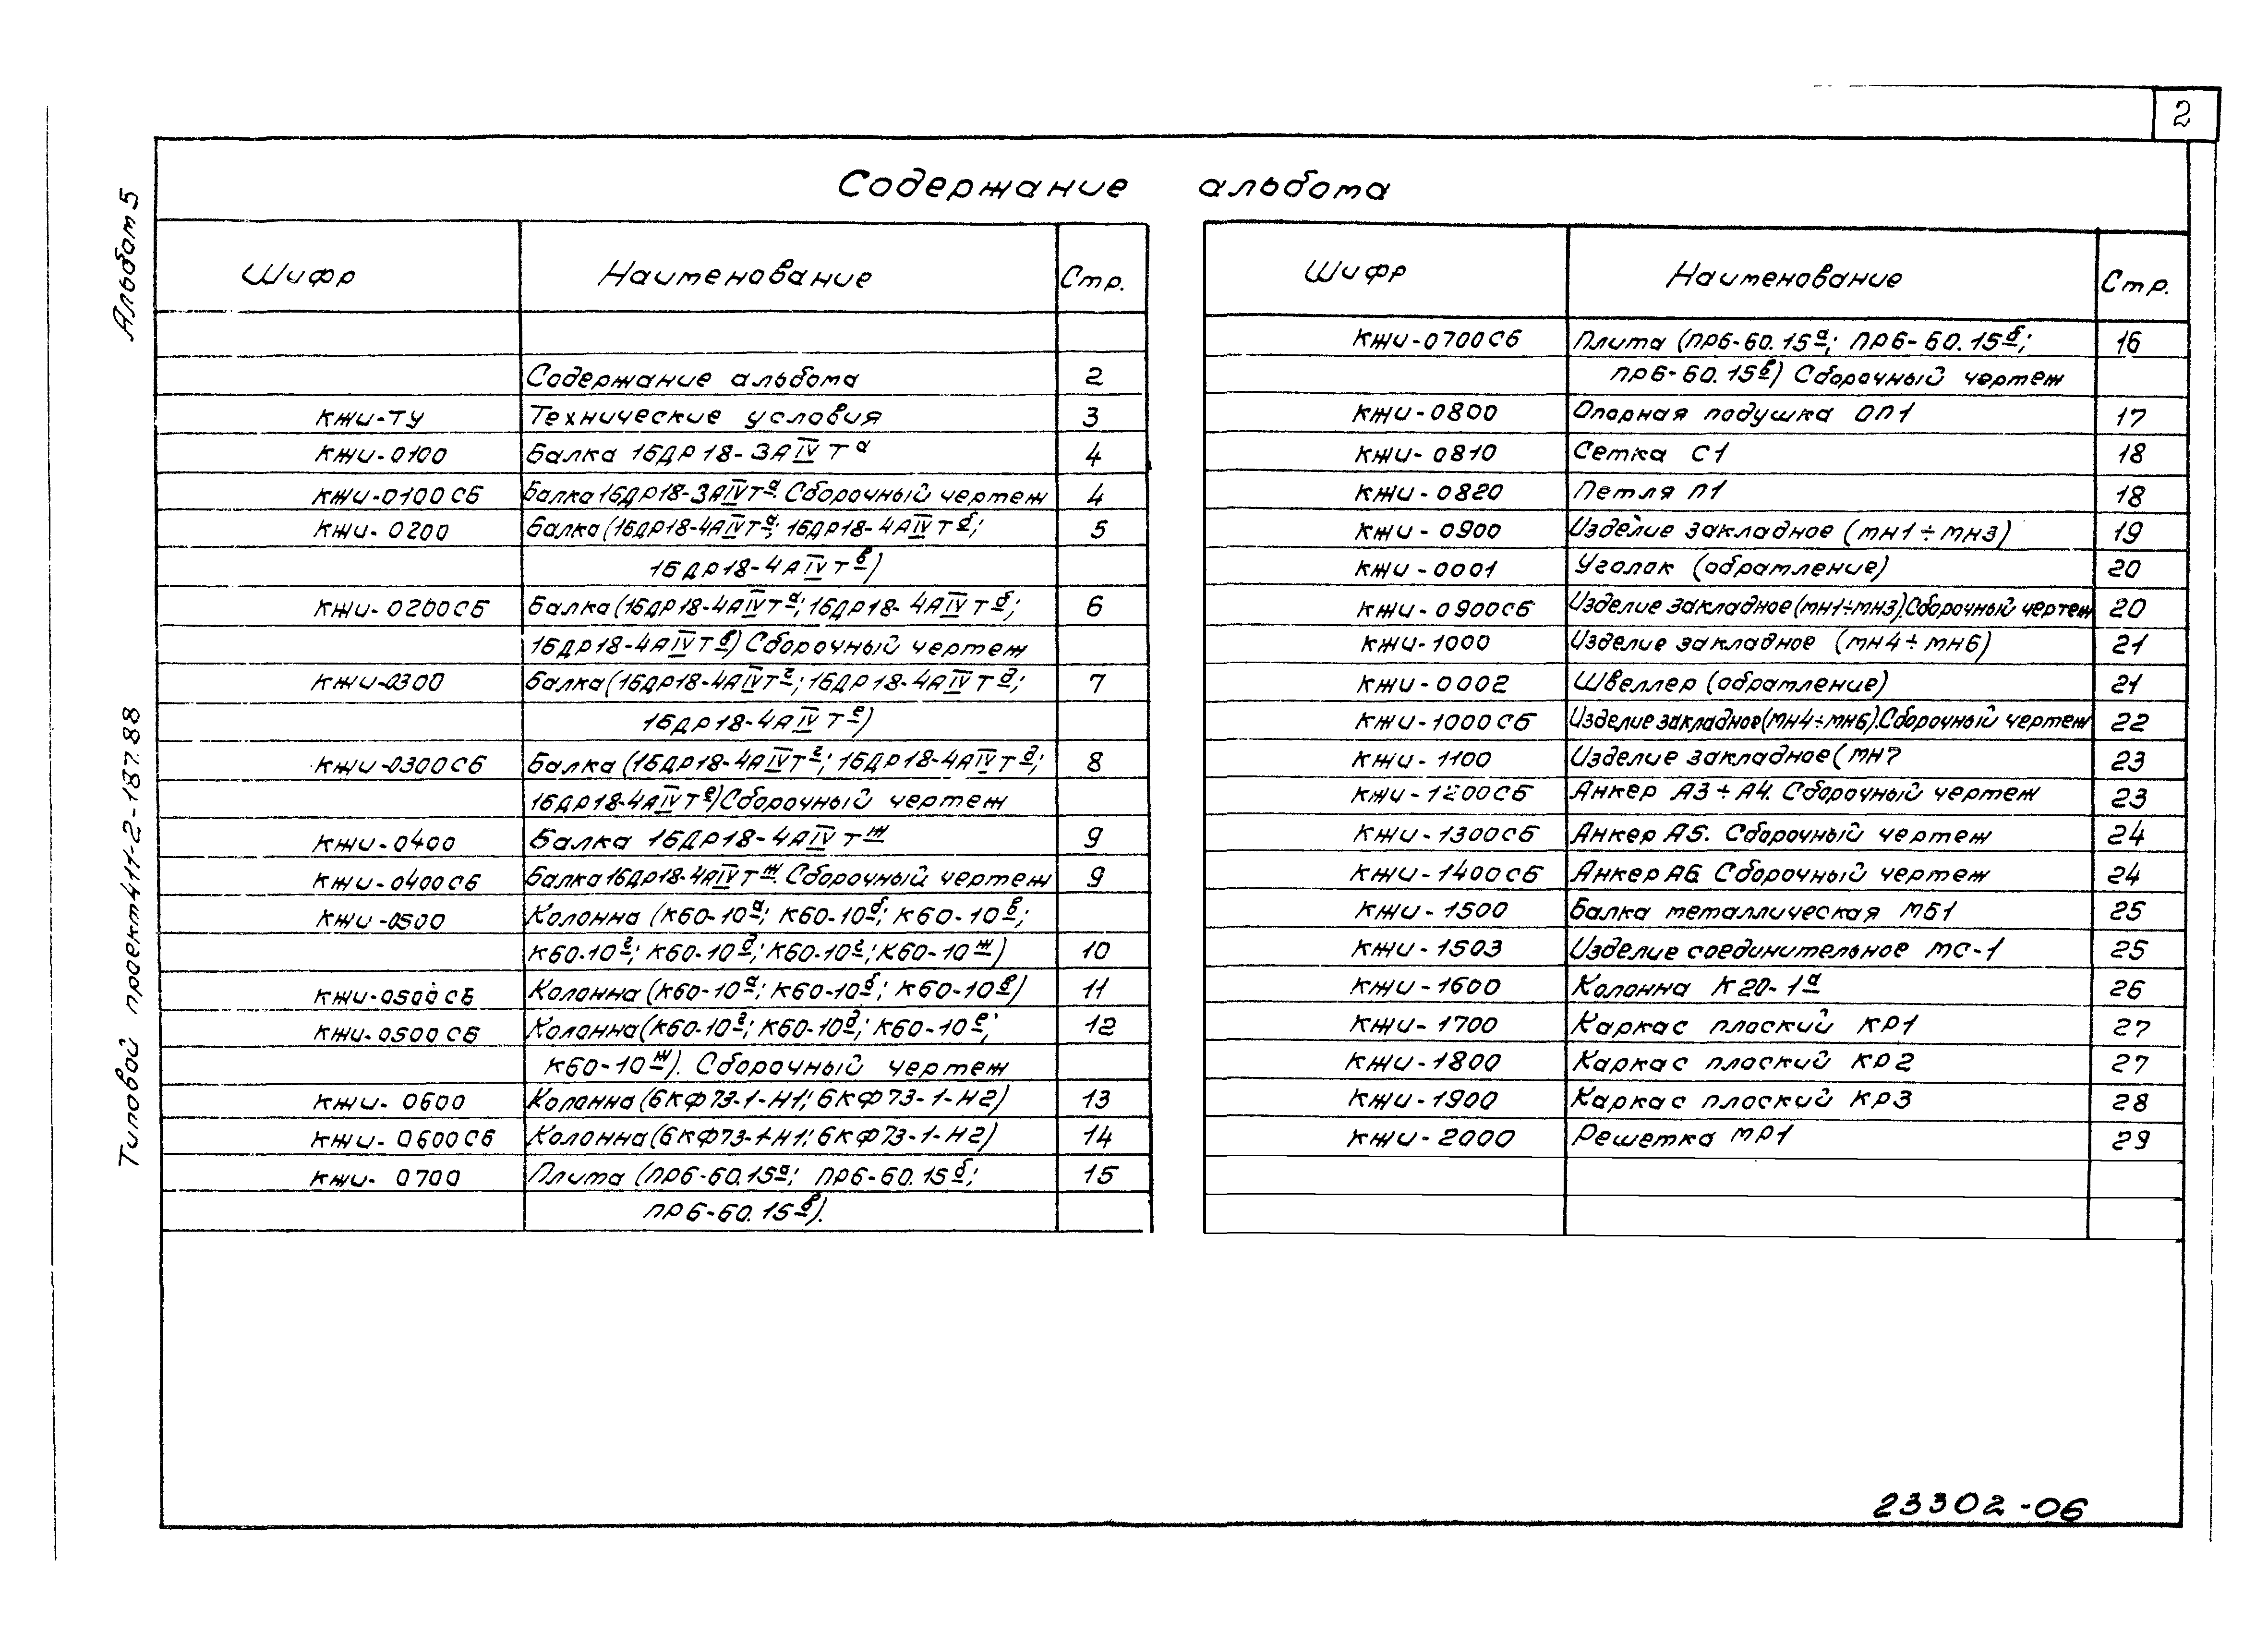 2
Альбом 5
Типовой проект 411-2-187.88
Содержание альбома
Шифр Наименование Стр.
Содержание альбома 2
КЖИ-ТУ Технические условия 3
КЖИ-0100 Балка 1БДР18-3АIVТа 4
КЖИ-0100СБ Балка 1БДР18-3АIVТа. Сборочный чертеж 4
КЖИ-0200 Балка (1БДР18-4АIVТа; 1БДР18-4АIVТб; 5
1БДР18-4АIVТв)
КЖИ-0200СБ Балка (1БДР18-4АIVТа; 1БДР18-4АIVТб; 6
1БДР18-4АIVТв) Сборочный чертеж
КЖИ-0300 Балка (1БДР18-4АIVТг; 1БДР18-4АIVТд; 7
1БДР18-4АIVТе)
КЖИ-0300СБ Балка (1БДР18-4АIVТг; 1БДР18-4АIVТд; 8
1БДР18-4АIVТе) Сборочный чертеж
КЖИ-0400 Балка 1БДР18-4АIVТж 9
КЖИ-0400СБ Балка 1БДР18-4АIVТж. Сборочный чертеж 9
КЖИ-0500 Колонна (К60-10а; К60-10б; К60-10в;
К60-10г; К60-10д; К60-10г; К60-10ж) 10
КЖИ-0500СБ Колонна (К60-10а; К60-10б; К60-10в) 11
КЖИ-0500СБ Колонна (К60-10г; К60-10д; К60-10е; 12
К60-10ж). Сборочный чертеж
КЖИ-0600 Колонна (6КФ73-1-Н1; 6КФ73-1-Н2) 13
КЖИ-0600СБ Колонна (6КФ73-1-Н1; 6КФ73-1-Н2) 14
КЖИ-0700 Плита (ПР6-60.15а; ПР6-60.15б; 15
ПР6-60.15в).
Шифр Наименование Стр.
КЖИ-0700СБ Плита (ПР6-60.15а; ПР6-60.15б; 16
ПР6-60.15в) Сборочный чертеж
КЖИ-0800 Опорная подушка ОП1 17
КЖИ-0810 Сетка С1 18
КЖИ-0820 Петля П1 18
КЖИ-0900 Изделие закладное (МН1÷МН3) 19
КЖИ-0001 Уголок (обрамление) 20
КЖИ-0900СБ Изделие закладное (МН1÷МН3). Сборочный чертеж 20
КЖИ-1000 Изделие закладное (МН4÷МН6) 21
КЖИ-0002 Швеллер (обрамление) 21
КЖИ-1000СБ Изделие закладное (МН4÷МН6). Сборочный чертеж 22
КЖИ-1100 Изделие закладное (МН7 23
КЖИ-1200СБ Анкер А3÷А4. Сборочный чертеж 23
КЖИ-1300СБ Анкер А5. Сборочный чертеж 24
КЖИ-1400СБ Анкер А6. Сборочный чертеж 24
КЖИ-1500 Балка металлическая МБ1 25
КЖИ-1503 Изделие соединительное МС-1 25
КЖИ-1600 Колонна К20-1а 26
КЖИ-1700 Каркас плоский КР1 27
КЖИ-1800 Каркас плоский КР2 27
КЖИ-1900 Каркас плоский КР3 28
КЖИ-2000 Решетка МР1 29
23302-06